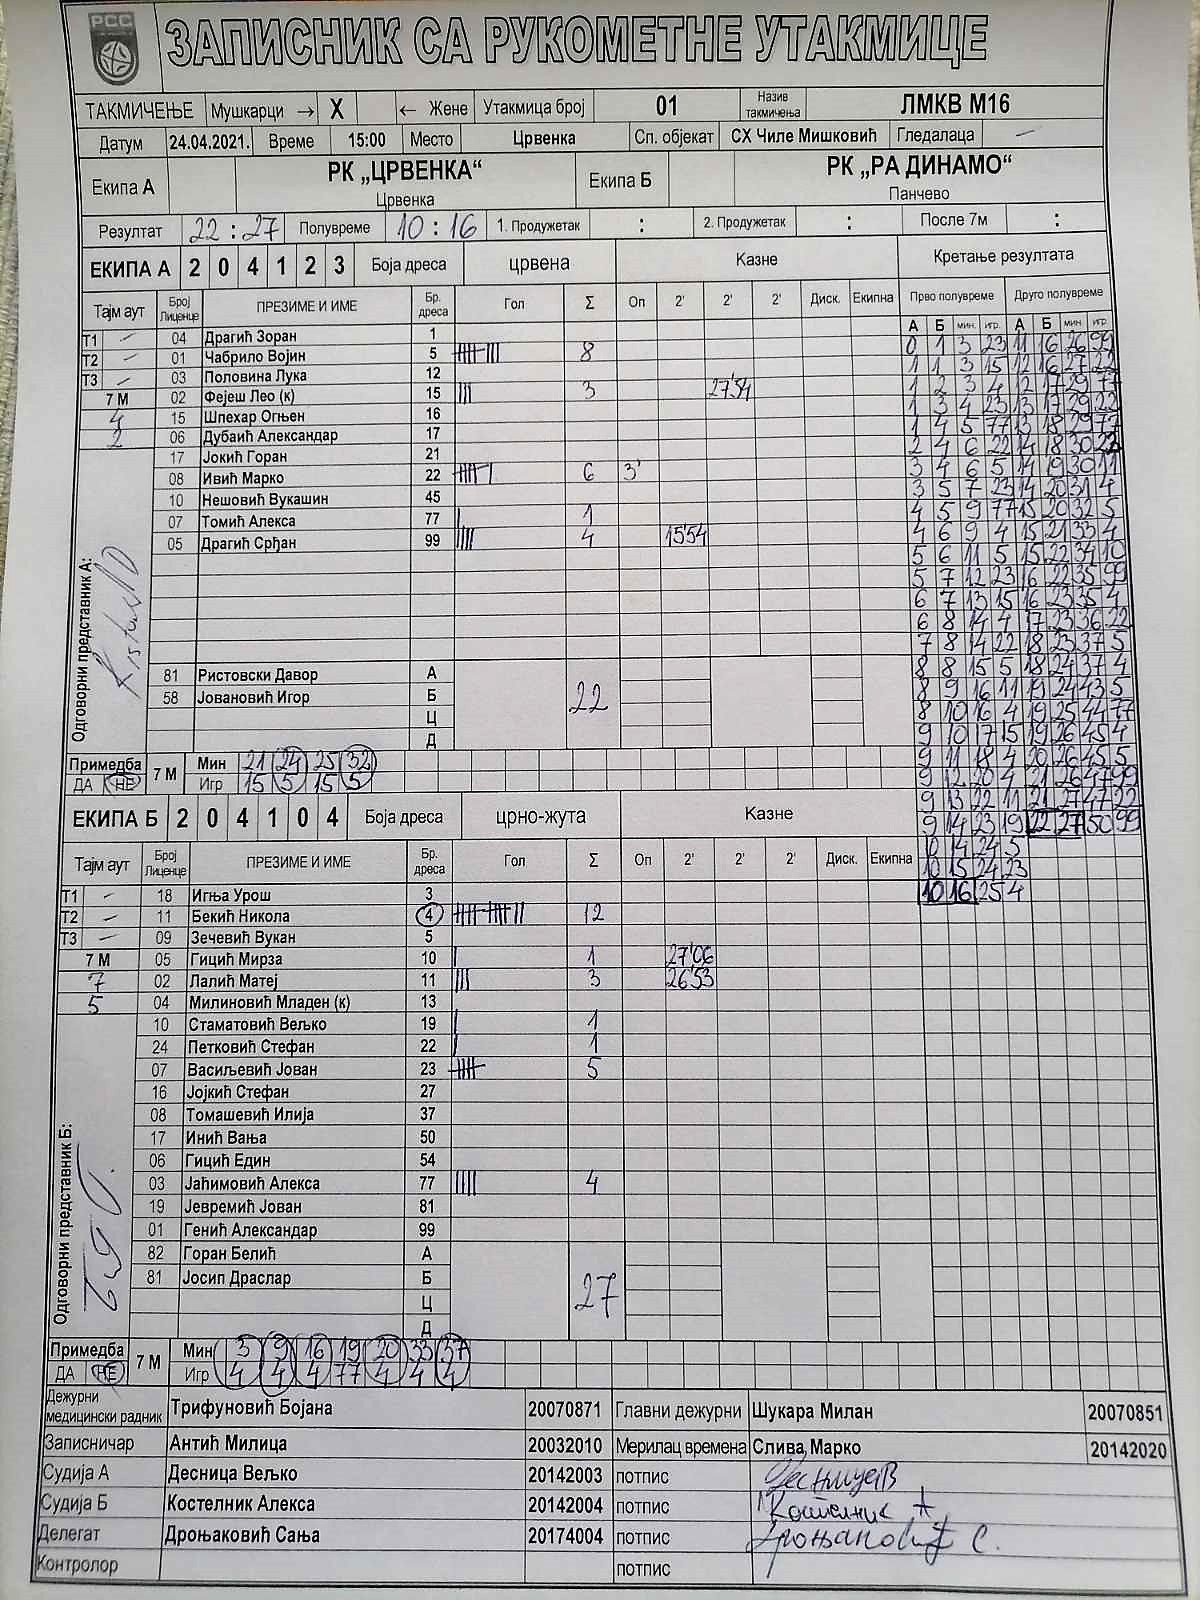 РСС
ЗАПИСНИК СА РУКОМЕТНЕ УТАКМИЦЕ
ТАКМИЧЕЊЕ Мушкарци → X ← Жене Утакмица број 01 Назив такмичења ЛМКВ М16
Датум 24.04.2021. Време 15:00 Место Црвенка Сп. објекат СХ Чиле Мишковић Гледалаца –
Екипа А РК „ЦРВЕНКА“ Екипа Б РК „РА ДИНАМО“
Црвенка Панчево
Резултат 22 : 27 Полувреме 10 : 16 1. Продужетак : 2. Продужетак : После 7м :
ЕКИПА А 2 0 4 1 2 3 Боја дреса црвена Казне Кретање резултата
Тајм аут Број Лиценце ПРЕЗИМЕ И ИМЕ Бр. дреса Гол Σ Оп 2' 2' 2' Диск. Екипна Прво полувреме Друго полувреме
А Б мин. игр. А Б мин. игр.
Т1 – 04 Драгић Зоран 1 0 1 3 23 11 16 26 99
Т2 – 01 Чабрило Војин 5 8 1 1 3 15 12 16 27 22
Т3 – 03 Половина Лука 12 1 2 3 4 12 17 29 77
7 М 02 Фејеш Лео (к) 15 3 27'54 1 3 4 23 13 17 29 22
4 15 Шпехар Огњен 16 1 4 5 77 13 18 29 77
2 06 Дубаић Александар 17 2 4 6 22 14 18 30 22
17 Јокић Горан 21 3 4 6 5 14 19 30 11
08 Ивић Марко 22 6 3' 3 5 7 23 14 20 31 4
10 Нешовић Вукашин 45 4 5 9 77 15 20 32 5
07 Томић Алекса 77 1 4 6 9 4 15 21 33 4
05 Драгић Срђан 99 4 15'54 5 6 11 5 15 22 34 10
5 7 12 23 16 22 35 99
6 7 13 15 16 23 35 4
6 8 14 4 17 23 36 22
7 8 14 22 18 23 37 5
Одговорни представник А:
81 Ристовски Давор А 22 8 8 15 5 18 24 37 4
58 Јовановић Игор Б 8 9 16 11 19 24 43 5
Ц 8 10 16 4 19 25 44 77
Д 9 10 17 15 19 26 45 4
Примедба 7 М Мин 21 24 25 32 9 11 18 4 20 26 45 5
ДА НЕ Игр 15 5 15 5 9 12 20 4 21 26 47 99
ЕКИПА Б 2 0 4 1 0 4 Боја дреса црно-жута Казне 9 13 22 11 21 27 47 22
9 14 23 19 22 27 50 99
Тајм аут Број Лиценце ПРЕЗИМЕ И ИМЕ Бр. дреса Гол Σ Оп 2' 2' 2' Диск. Екипна 10 14 24 5
10 15 24 23
Т1 – 18 Игња Урош 3 10 16 25 4
Т2 – 11 Бекић Никола 4 12
Т3 – 09 Зечевић Вукан 5
7 М 05 Гицић Мирза 10 1 27'06
7 02 Лалић Матеј 11 3 26'53
5 04 Милиновић Младен (к) 13
10 Стаматовић Вељко 19 1
24 Петковић Стефан 22 1
07 Васиљевић Јован 23 5
16 Јојкић Стефан 27
08 Томашевић Илија 37
17 Инић Вања 50
06 Гицић Един 54
03 Јаћимовић Алекса 77 4
19 Јевремић Јован 81
01 Генић Александар 99
Одговорни представник Б:
82 Горан Белић А
81 Јосип Драслар Б 27
Ц
Д
Примедба 7 М Мин 3 9 16 19 20 33 37
ДА НЕ Игр 4 4 4 77 4 4 4
Дежурни медицински радник Трифуновић Бојана 20070871 Главни дежурни Шукара Милан 20070851
Записничар Антић Милица 20032010 Мерилац времена Слива Марко 20142020
Судија А Десница Вељко 20142003 потпис Десница В
Судија Б Костелник Алекса 20142004 потпис Костелник А
Делегат Дроњаковић Сања 20174004 потпис Дроњаковић С.
Контролор потпис